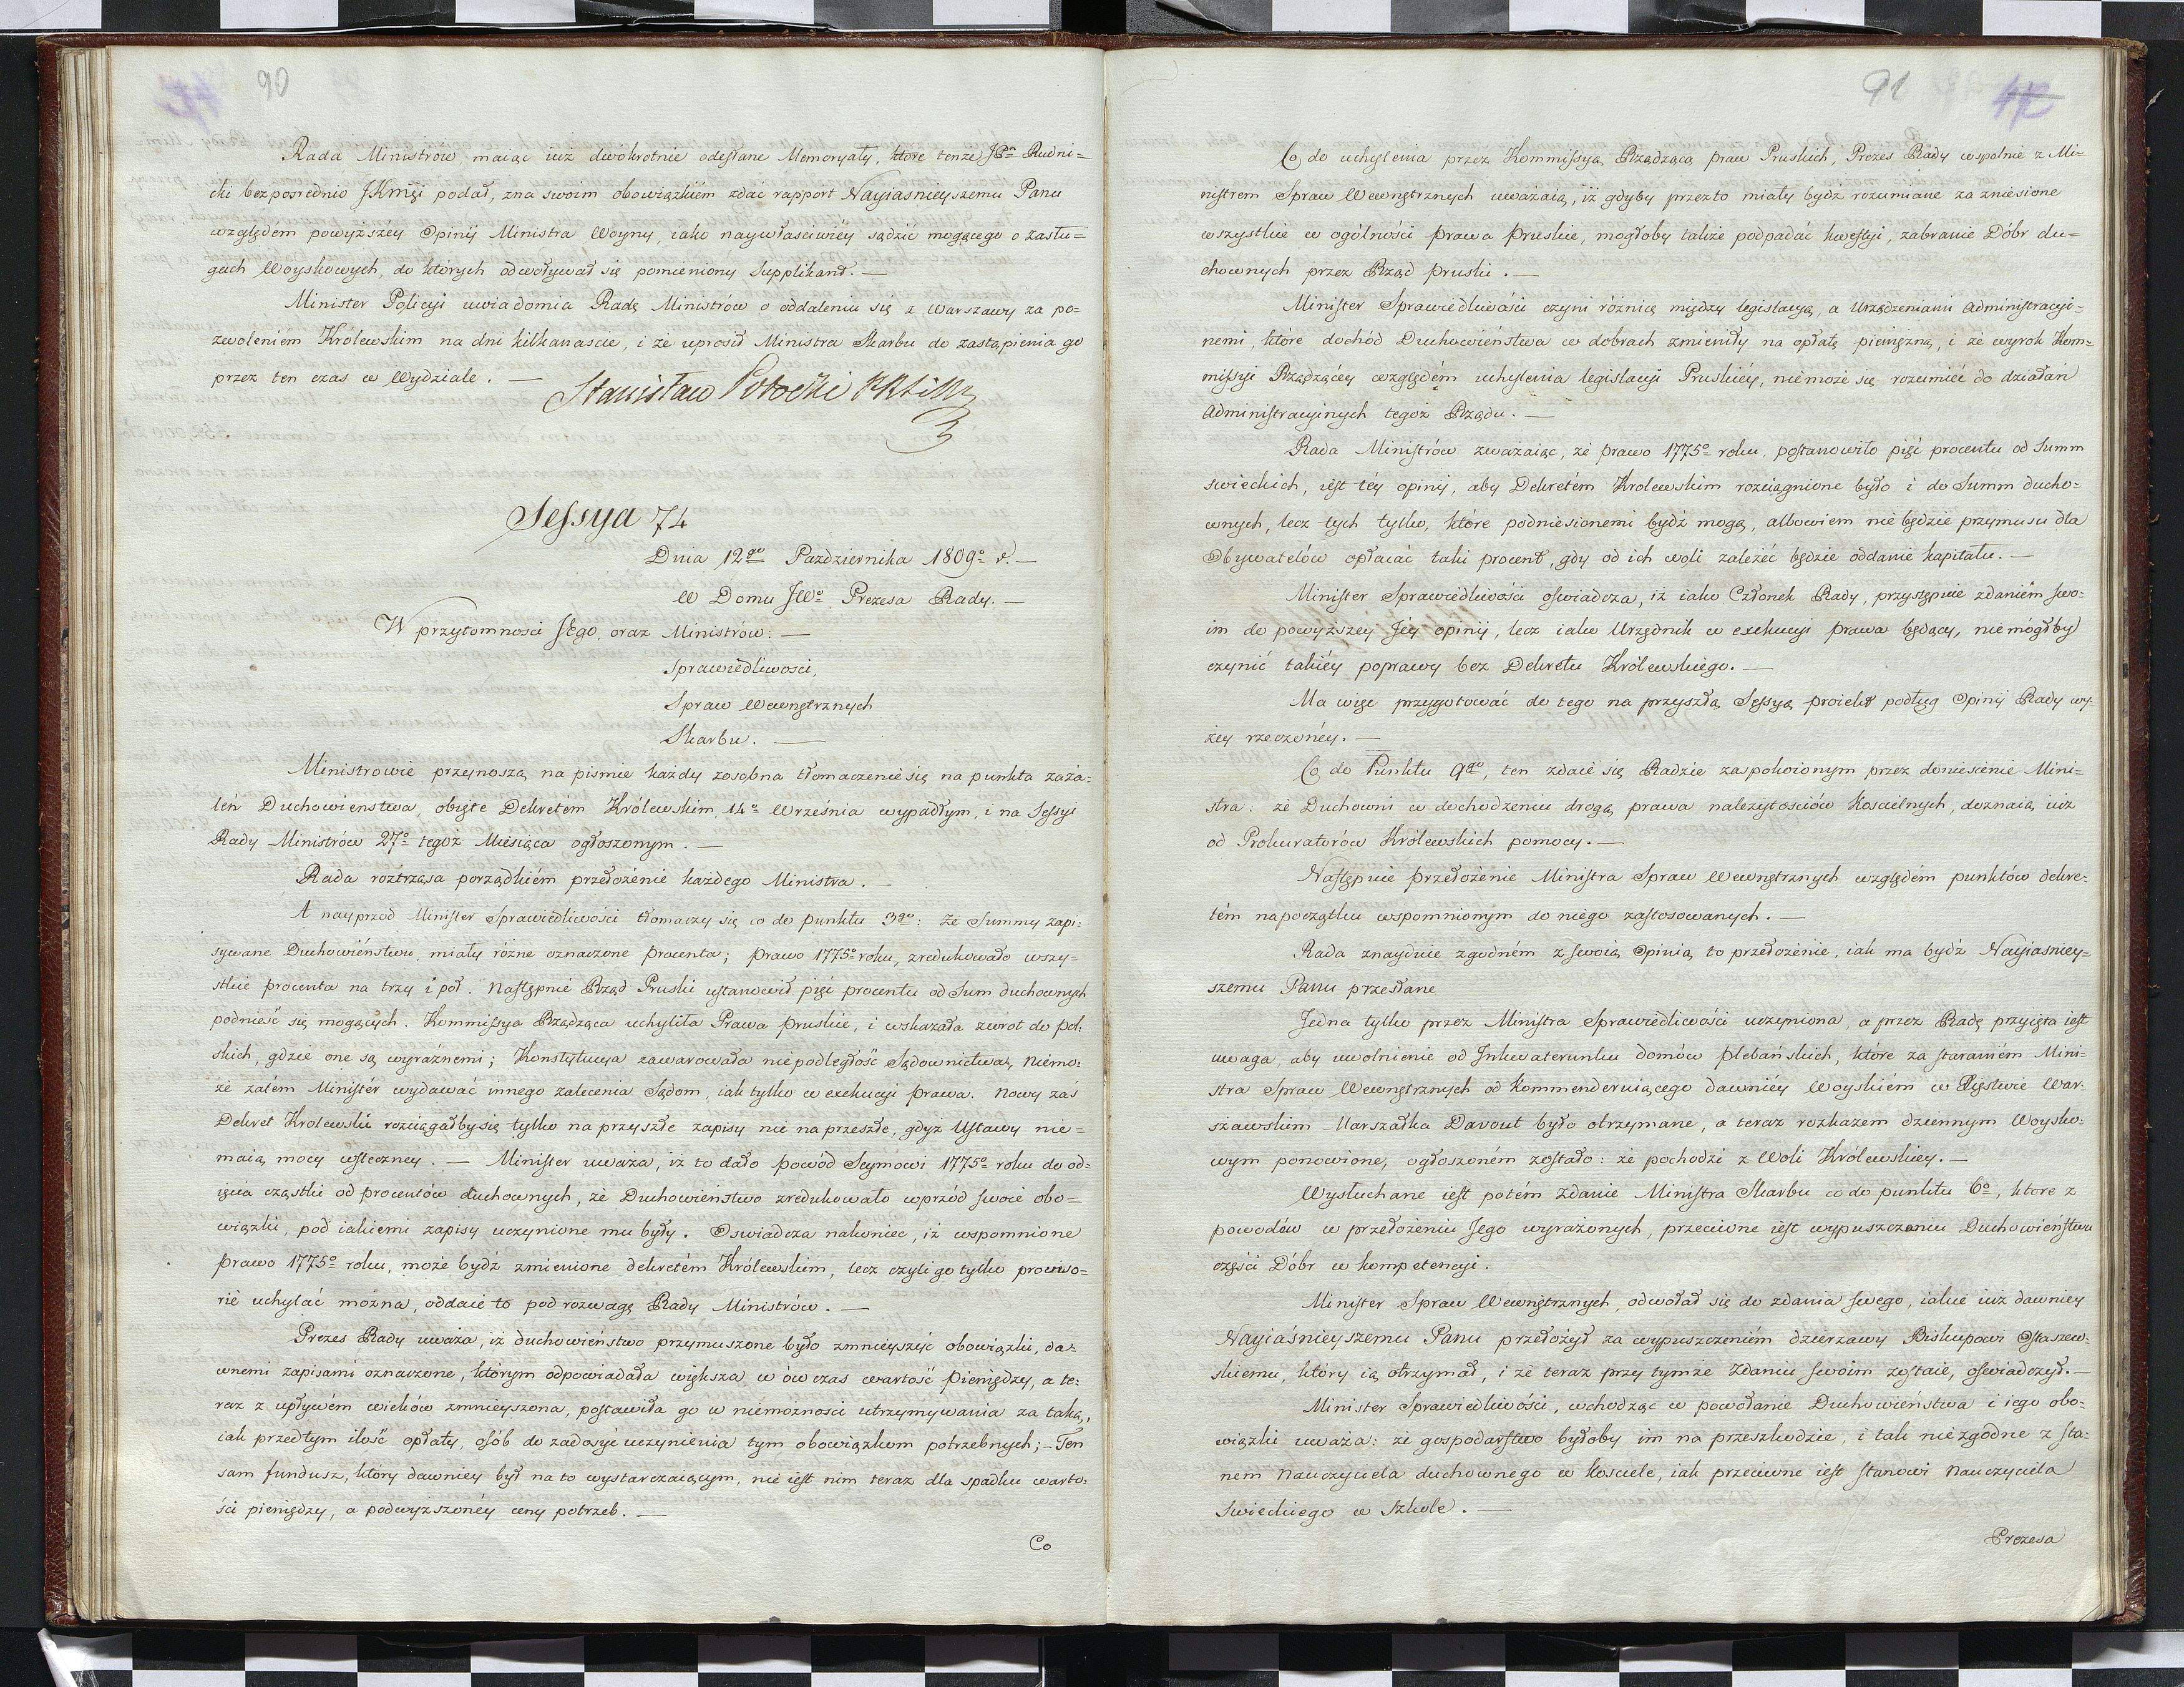 90
Rada Ministrów, maiąc iuż dwókrotnie odesłane Memoryały, które tenże JPn Rudni=
cki bezposrednio JKmći podał, zna swoim obowiązkiém zdać rapport Nayiasnieyszemu Panu
względém powyższéy Opinij Ministra Woyny, iako naywłasciwiéy sądzić mogącego o zasłu=
gach Woyskowych, do których odwoływał się pomieniony Supplikant. —
Minister Policyi uwiadomia Radę Ministrów o oddaleniu się z Warszawy za po=
zwoleniém Królewskim na dni kilkanascie, i że uprosił Ministra Skarbu do zastąpienia go
przez ten czas w Wydziale. —
Stanisław Potocki
Sessya 74
Dnia 12go Pazdziernika 1809o r. —
W Domu JWo Prezesa Rady. —
W przytomnosci Jego, oraz Ministrów: —
Sprawiedliwosci,
Spraw Wewnętrznych
Skarbu. —
Ministrowie przynoszą na pismie każdy zosobna tłomaczenie się na punkta zaża=
leń Duchowienstwa, obięte Dekretém Królewskim, 14o Września wypadłym, i na Sessyi
Rady Ministrów 27o tegoż Miesiąca ogłoszonym. —
Rada roztrząsa porządkiém przełożénie każdego Ministra. —
A nayprzod Minister Sprawiedliwości tłomaczy się co do punktu 3go: że Summy zapi=
sywane Duchowiéństwu, miały różne oznaczone procenta; prawo 1775o roku, zredukowało wszy=
stkie procenta na trzy i poł. Następnie Rząd Pruski ustanowił pięć procentu od Sum duchownych
podnieść się mogących. Kommissya Rządząca uchyliła Prawa pruskie, i wskazała zwrot do pol=
skich, gdzie one są wyraźnemi; Konstytucya zawarowała niepodległość Sądownictwa, niemo=
że zatém Ministér wydawać innego zalecenia Sądom, iak tylko w exekucyi prawa. Nowy zas
Dekret Krolewski rozciągałby się tylko na przyszłe zapisy nie na przeszłe, gdyż Ustawy nie=
maią mocy wsteczney. — Minister uważa, iż to dało powód Seymowi 1775o roku do od=
ięcia cząstki od procentów duchownych, że Duchowieństwo zredukowało wprzód swoie obo=
wiązki, pod iakiemi zapisy uczynione mu były. Oswiadcza nakoniec, iż wspomnione
prawo 1775o roku, może bydź zmienione dekretém Królewskim, lecz czyli go tylko prowiso=
rie uchylać można, oddaie to pod rozwagę Rady Ministrów. —
Prezes Rady uważa, iż duchowieństwo przymuszone było zmnieyszyć obowiązki, da=
wnemi zapisami oznaczone, którym odpowiadała większa w ów czas wartość pieniędzy, a te=
raz z upływém wieków zmnieyszona, postawiła go w niemożnosci utrzymywania za taką,
iak przedtym ilość opłaty, osób do zadosyć uczynienia tym obowiązkom potrzebnych; — Ten
sam fundusz, który dawniey był na to wystarczaiącym, nie iest nim teraz dla spadku warto=
ści pieniędzy, a podwyzszonéy ceny potrzeb. —
Co
91
Co do uchylenia przez Kommissyą Rządzącą praw Pruskich, Prezes Rady wspolnie z Mi=
nistrem Spraw Wewnętrznych uważaią, iż gdyby przezto miały bydź rozumiane za zniesione
wszystkie w ogólności prawa pruskie, mogłoby także podpadać kwestyi, zabranie Dóbr du=
chownych przez Rząd pruski. —
Minister Sprawiedliwości czyni różnicę między legislacyą, a Urządzeniami Administracyi=
nemi, które dochód Duchowiéństwa w dobrach zmieniły na opłatę pieniężną, i że wyrok Kom=
missyi Rządzącéy względém uchylenia legislacyi Pruskiéy, niemoże się rozumiéć do działan
Administracyinych tegoż Rządu. —
Rada Ministrów zważaiąc, że prawo 1775o roku, postanowiło pięć procentu od Summ
swieckich, iest téy opinij, aby Dekretém Krolewskim rozciągnione było i do Summ ducho=
wnych, lecz tych tylko, które podniesionemi bydź mogą, albowiem nie będzie przymusu dla
Obywatelów opłacać taki procent, gdy od ich woli zależéć będzie oddanie kapitału. —
Minister Sprawiedliwości oswiadcza, iż iako Członek Rady, przystępuie zdaniém swo=
im do powyższey Jéy opinij, lecz iako Urzędnik w exekucyi prawa będący, niemógłby
czynić takiéy poprawy bez Dekretu Królewskiego. —
Ma więc przygotować do tego na przyszłą Sessyą proiekt podług Opinij Rady wy=
żey rzeczonéy. —
Co do Punktu 9go, ten zdaie się Radzie zaspokoionym przez doniesienie Mini=
stra: że Duchowni w dochodzeniu drogą prawa należytosciów koscielnych, doznaią iuż
od Prokuratorów Królewskich pomocy. —
Następuie przełożénie Ministra Spraw Wewnętrznych względém punktów dekre=
tém napoczątku wspomnionym do niego zastosowanych. —
Rada znayduie zgodném z swoią Opinią to przełożenie, iak ma bydź Nayiasniey=
szemu Panu przesłane
Jedna tylko przez Ministra Sprawiedliwości uczyniona, a przez Radę przyięta iest
uwaga, aby uwolnienie od Inkwaterunku domów plebańskich, które za staraniém Mini=
stra Spraw Wewnętrznych od kommenderuiącego dawniéy Woyskiém w Xięstwie War=
szawskim Marszałka Davout było otrzymane, a teraz rozkazem dziennym Woysko=
wym ponowione, ogłoszoném zostało: że pochodzi z Woli Królewskiey. —
Wysłuchane iest potém zdanie Ministra Skarbu co do punktu 6o, ktore z
powodów w przełożeniu Jego wyrażonych, przeciwne iest wypuszczeniu Duchowieństwu
części Dóbr w kompetencyi.
Minister Spraw Wewnętrznych, odwołał się do zdania swego, iakie iuż dawniey
Nayiaśnieyszemu Panu przełożył za wypuszczeniém dzierzawy Biskupowi Staszew=
skiemu, który ią otrzymał, i że teraz przy tymże zdaniu swoim zostaie, oswiadczył. —
Minister Sprawiedliwości, wchodząc w powołanie Duchowiéństwa i iego obo=
wiązki uważa: że gospodarstwo byłoby im na przeszkodzie, i tak niezgodne z sta=
nem nauczyciela duchownego w kosciele, iak przeciwne iest stanowi nauczyciela
swieckiego w szkole. —
Prezesa